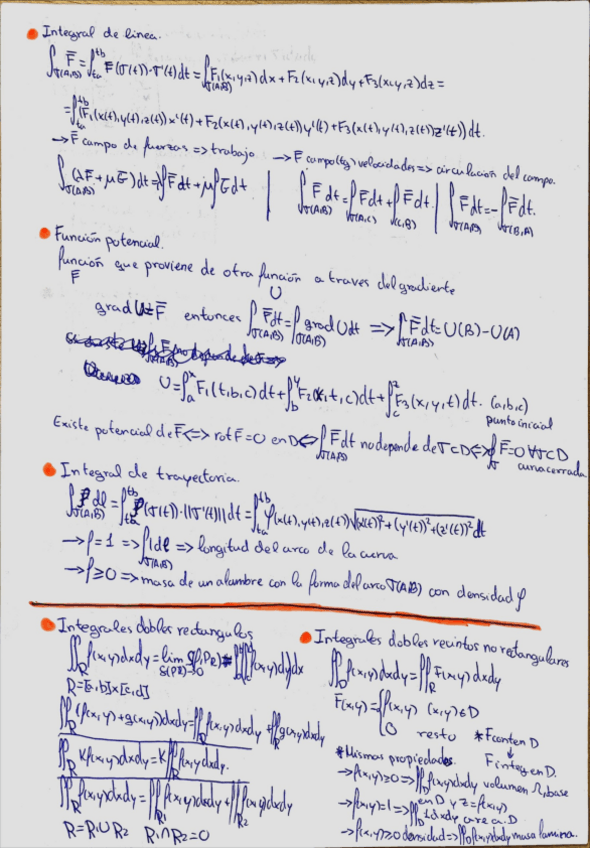 Integral de linea.
∫σ(A,B) F̄ = ∫ta^tb F̄(σ(t))·σ'(t)dt = ∫σ(A,B) F1(x,y,z)dx + F2(x,y,z)dy + F3(x,y,z)dz =
= ∫ta^tb (F1(x(t),y(t),z(t))x'(t) + F2(x(t),y(t),z(t))y'(t) + F3(x(t),y(t),z(t))z'(t))dt.
→ F̄ campo de fuerzas => trabajo → F̄ campo(tg) velocidades => circulación del campo.
∫σ(A,B) (λF̄ + μḠ)dt = λ∫F̄dt + μ∫Ḡdt | ∫σ(A,B) F̄dt = ∫σ(A,C) F̄dt + ∫σ(C,B) F̄dt. | ∫σ(A,B) F̄dt = -∫σ(B,A) F̄dt.
Función potencial.
función que proviene de otra función a traves del gradiente
F̄ U
grad U = F̄ entonces ∫σ(A,B) F̄dt = ∫σ(A,B) grad U dt => ∫σ(A,B) F̄dt = U(B) - U(A)
U = ∫a^x F1(t,b,c)dt + ∫b^y F2(x,t,c)dt + ∫c^z F3(x,y,t)dt. (a,b,c)
punto inicial
Existe potencial de F̄ <=> rot F̄ = 0 en D <=> ∫σ(A,B) F̄dt no depende de σ⊂D <=> ∮σ F̄ = 0 ∀σ⊂D
curva cerrada
Integral de trayectoria.
∫σ(A,B) f dl = ∫ta^tb f(σ(t))·||σ'(t)||dt = ∫ta^tb f(x(t),y(t),z(t))√((x'(t))²+(y'(t))²+(z'(t))²) dt
→ f=1 => ∫σ(A,B) 1dl => longitud del arco de la curva
→ f≥0 => masa de un alambre con la forma del arco σ(A,B) con densidad f
Integrales dobles rectangulos
∬R f(x,y)dxdy = lim δ(PR)→0 (f,PR) = ∫∫f(x,y)dy dx
R=[a,b]x[c,d]
∬R (f(x,y)+g(x,y))dxdy = ∬R f(x,y)dxdy + ∬R g(x,y)dxdy
∬R Kf(x,y)dxdy = K∬R f(x,y)dxdy.
∬R f(x,y)dxdy = ∬R1 f(x,y)dxdy + ∬R2 f(x,y)dxdy
R=R1∪R2 R1∩R2=0
Integrales dobles recintos no rectangulares
∬D f(x,y)dxdy = ∬R F(x,y)dxdy
F(x,y) = { f(x,y) (x,y)∈D
0 resto *F cont en D
↓
F integ en D.
*Mismas propiedades.
→ f(x,y)≥0 => ∬D f(x,y)dxdy volumen Ω, base
en D y z=f(x,y)
→ f(x,y)=1 => ∬D 1dxdy area D
→ f(x,y)≥0 densidad => ∬D f(x,y)dxdy masa lamina.